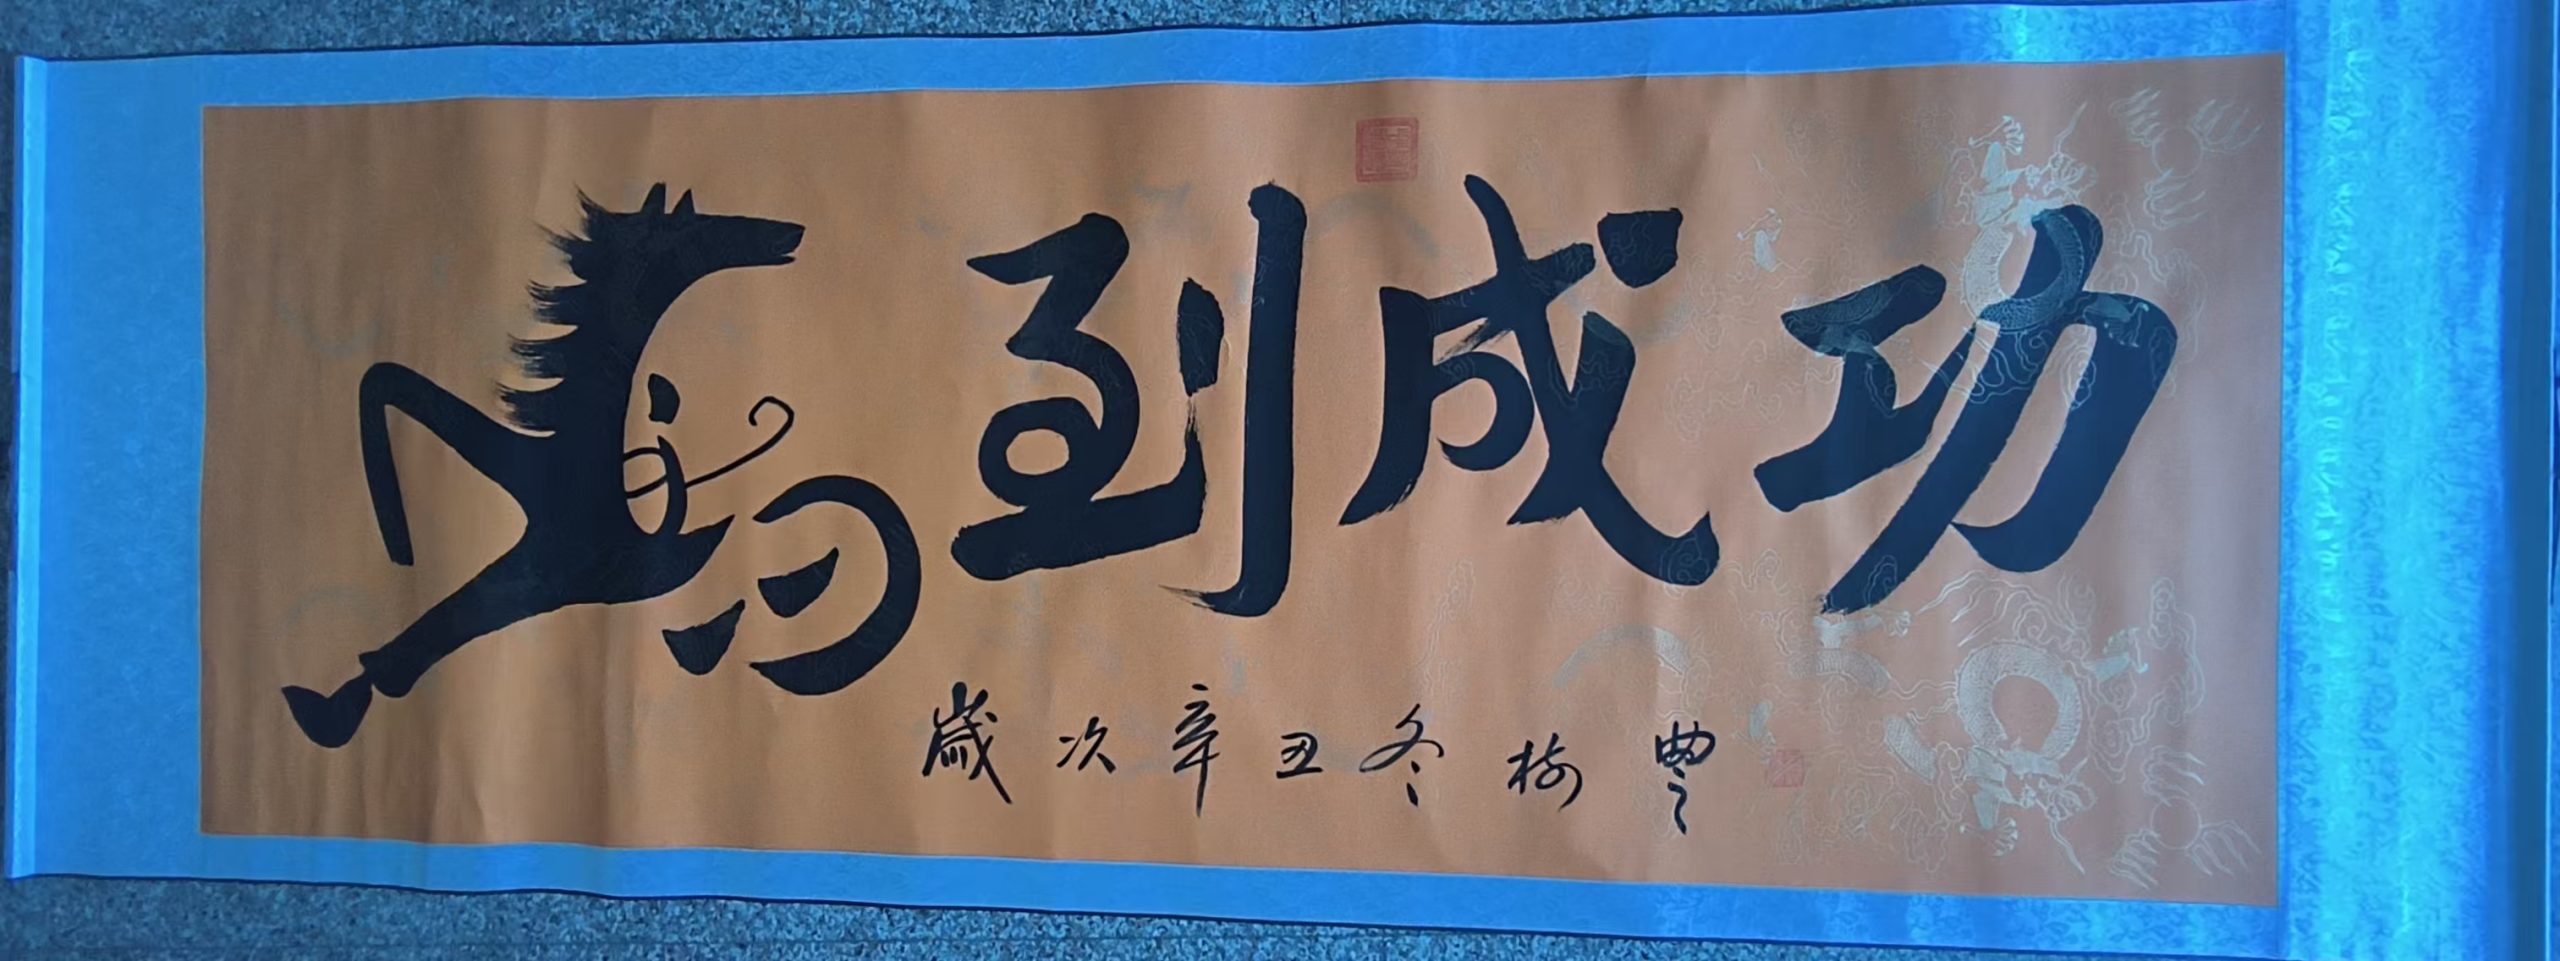 馬到成功
歲次辛丑冬樹豐